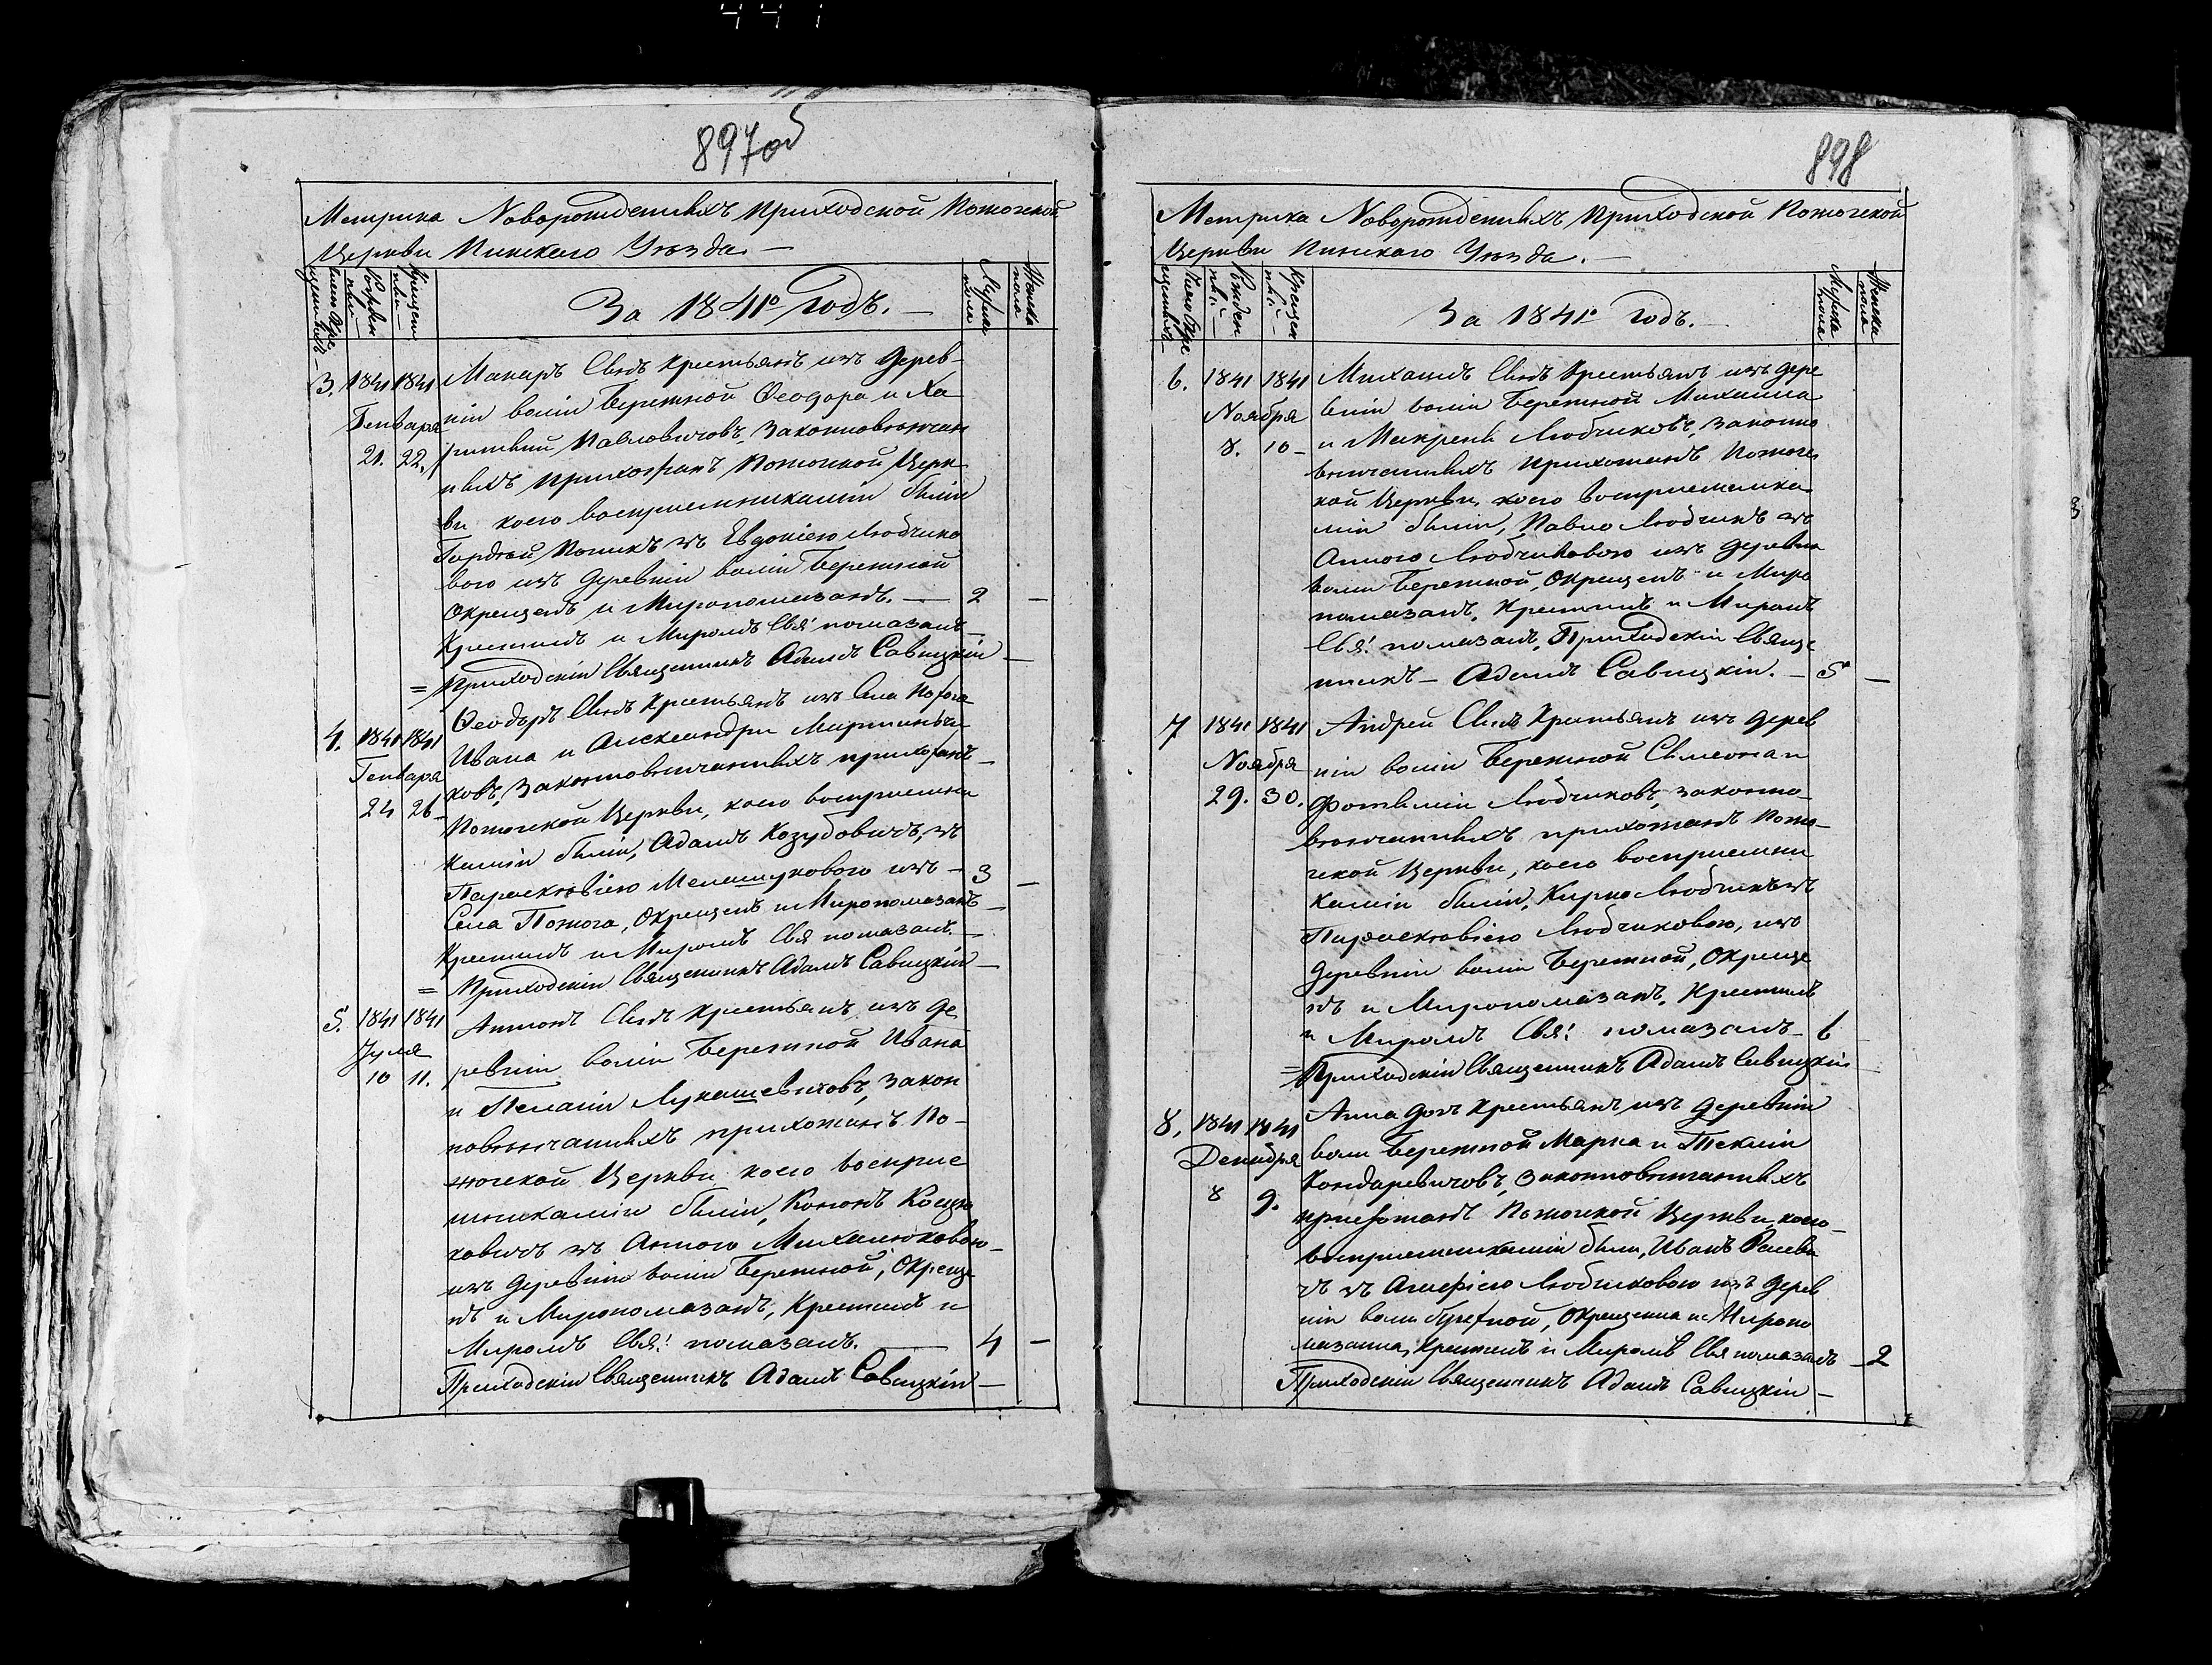 897об
Метрика Новорожденныхъ Приходской Пожогской
Церкви Пинскаго Уѣзда. —
Число Окрещенныхъ
Рожденныи
Крещенныи
За 1841º годъ. —
Мужска пола
Женска пола
3. 1841 1841 Макаръ Сынъ Крестьянъ изъ дерев-
Генваря ніи воліи Бережной Ѳеодора и Ха
21. 22. ритыни Павловичовъ, Законновѣнчан
ныхъ прихожанъ Пожогской Церк
ви коего восприемниками были
Гордѣй Попикъ зъ Евдокіею Любчико
вою изъ деревніи воліи Бережной
Окрещенъ и Миропомазанъ. — 2 —
Крестилъ и Миромъ Свя: помазалъ —
= Приходскіи Священникъ Адамъ Савицкіи —
4. 1841 1841 Ѳеодоръ Сынъ Крестьянъ изъ Села Пожога
Генваря Ивана и Александры Мартинчи
24 26 ковъ, Законновѣнчанныхъ прихожанъ
Пожогской Церкви, коего восприемни
ками были, Адамъ Козубовичъ, зъ
Параскевіею Мелашуковою изъ — 3 —
Села Пожога, Окрещенъ и Миропомазанъ
Крестилъ и Миромъ Свя помазалъ. —
= Приходскіи Священникъ Адамъ Савицкіи —
5. 1841 1841 Антонъ Сынъ Крестьянъ, изъ де
Іуля ревніи воліи Бережной Ивана
10 11. и Пелагіи Лукашевичовъ, Закон
новѣнчанныхъ прихожанъ По-
жогской Церкви коего восприе
мниками были, Кононъ Косцю
ковичъ зъ Анною Михалюковою
изъ деревніи воліи Бережной, Окреще
нъ и Миропомазанъ, Крестилъ и
Миромъ Свя: помазалъ. — 4 —
Приходскіи Священникъ Адамъ Савицкіи —
898
Метрика Новорожденныхъ Приходской Пожогской
Церкви Пинскаго Уѣзда. —
Число Окрещенныхъ
Рожденныи
Крещенныи
За 1841º годъ. —
Мужска пола
Женска пола
6. 1841 1841 Михаилъ Сынъ Крестьянъ изъ дере
Ноября вніи воліи Бережной Михаила
8. 10 и Макрены Любчиковъ, законно
вѣнчанныхъ прихожанъ Пожогс
кой Церкви, коего восприемника
ми были, Павло Любчикъ зъ
Анною Любчиковою изъ деревни
воли Бережной, Окрещенъ и Миро
помазанъ, Крестилъ и Миромъ
Свя: помазалъ, Приходскіи Свяще
нникъ — Адамъ Савицкіи. — 5 —
7 1841 1841 Андрей Сынъ Крестьянъ изъ дерев
Ноября ніи воліи Бережной Симеона и
29. 30. Фотиміи Любчиковъ, законно-
вѣнчанныхъ прихожанъ Пожо-
гской Церкви, коего восприемни
ками были, Кирило Любчикъ зъ
Параскевіею Любчиковою, изъ
деревніи воліи Бережной, Окреще
нъ и Миропомазанъ, Крестилъ
и Миромъ Свя: помазалъ — 6
= Приходскіи Священникъ Адамъ Савицкіи
8. 1841 1841 Анна дочъ Крестьянъ изъ деревніи
Декабря воли Бережной Марка и Теклии
8 9. Кондаревичовъ, Законновѣнчанныхъ
прихожанъ Пожогской Церкви, коею-
восприемниками были, Иванъ Ралеви
чъ зъ Агафіею Любчиковою изъ дерев
ніи воли бережной, Окрещенна и Миропо
мазанна, Крестилъ и Миромъ Свя помазалъ — 2
Приходскіи Священникъ Адамъ Савицкіи —